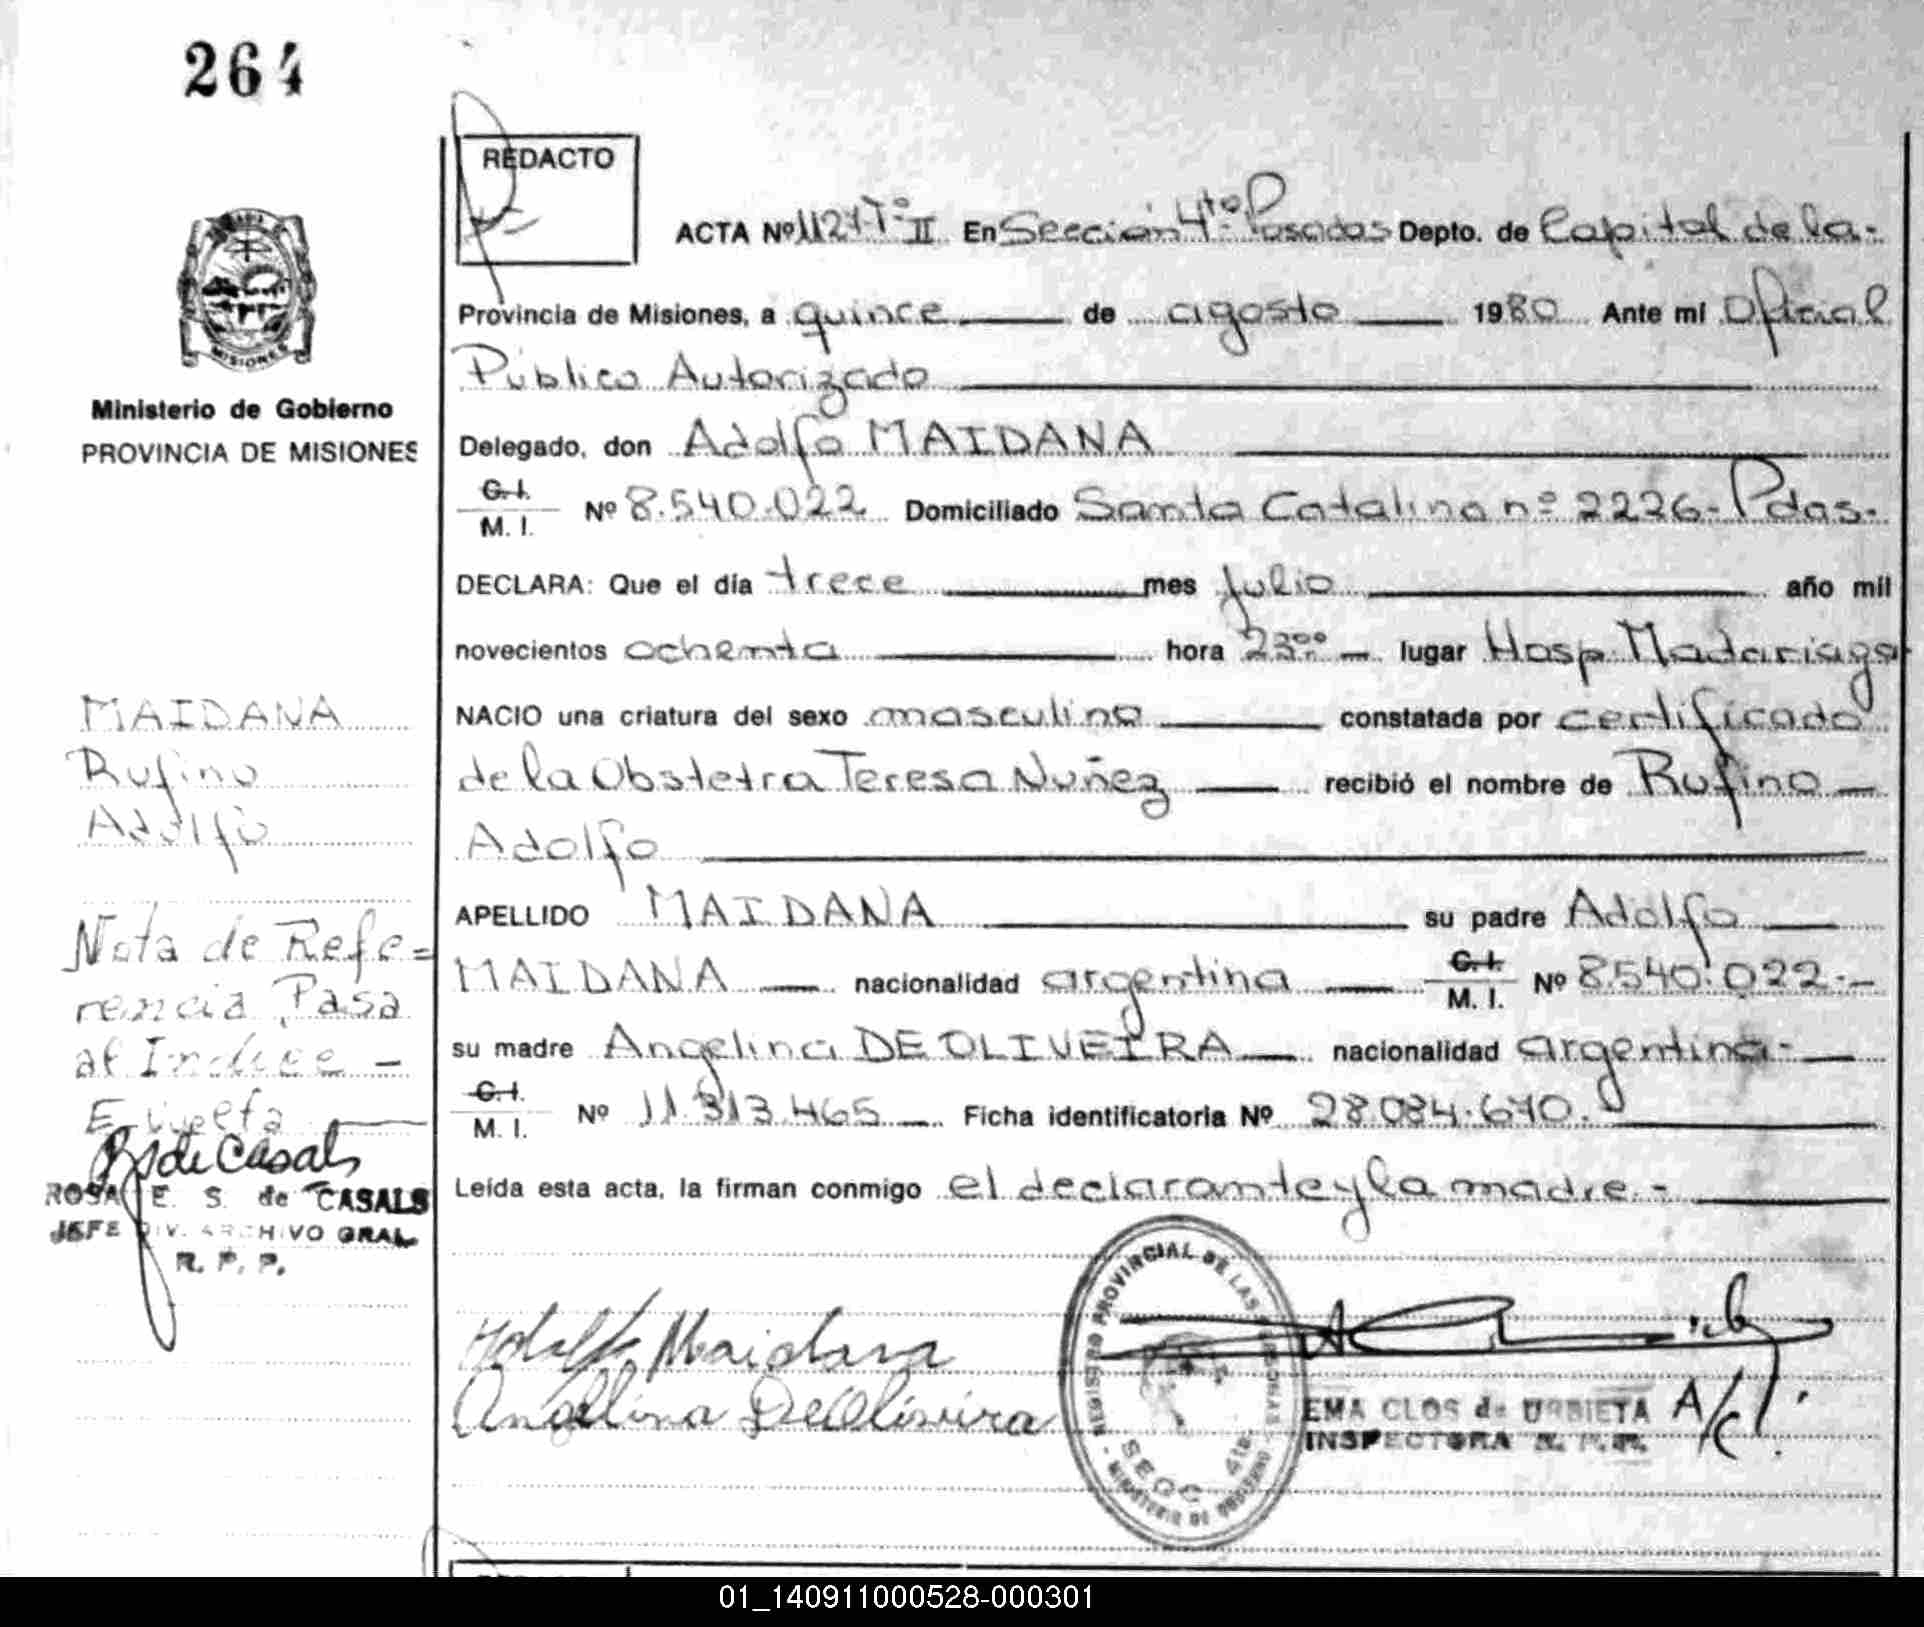 264
REDACTO
ACTA Nº 1121 Tº II En Sección 4ta Posadas Depto. de Capital de la-
Provincia de Misiones, a quince de agosto 1980 Ante mi Oficial
Público Autorizado
Delegado, don Adolfo MAIDANA
C.I.
M. I. Nº 8.540.022 Domiciliado Santa Catalina nº 2226- Pdas.-
DECLARA: Que el día trece mes Julio año mil
novecientos ochenta hora 23:00 — lugar Hosp. Madariaga
NACIO una criatura del sexo masculino constatada por certificado
de la Obstetra Teresa Nuñez recibió el nombre de Rufino —
Adolfo
APELLIDO MAIDANA su padre Adolfo
MAIDANA — nacionalidad argentina — C.I.
M. I. Nº 8.540.022.-
su madre Angelina DE OLIVEIRA — nacionalidad argentina.-
C.I.
M. I. Nº 11.313.465 — Ficha identificatoria Nº 28.084.670.
Leída esta acta, la firman conmigo el declarante y la madre.-
Adolfo Maidana
Angelina De Oliveira
REGISTRO PROVINCIAL DE LAS PERSONAS
SECC. 4ta.
MINISTERIO DE GOBIERNO
EMA CLOS de URBIETA A/C.
INSPECTORA R. P. P.
MISIONES
Ministerio de Gobierno
PROVINCIA DE MISIONES
MAIDANA
Rufino
Adolfo
Nota de Refe=
rencia Pasa
al Indice —
R S de Casals
ROSA E. S. de CASALS
JEFE DIV. ARCHIVO GRAL.
R. P. P.
01_140911000528-000301